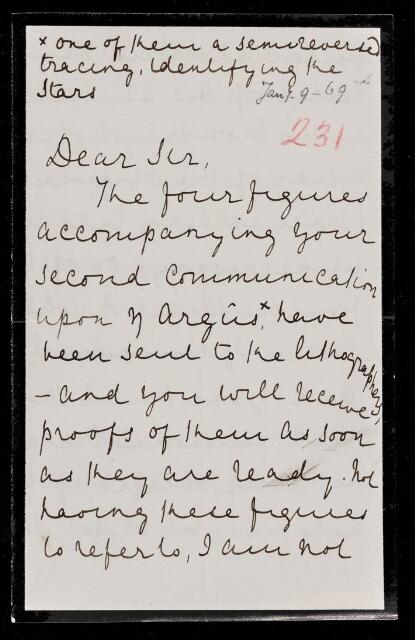 x one of them a semireversed
tracing, identifying the
stars
Jany. 9 - 69
231
Dear Sir,
The four figures
accompanying your
second communication
upon η Argûs,x have
been sent to the lithographers,
- and you will receive
proofs of them as soon
as they are ready. Not
having these figures
to refer to, I am not